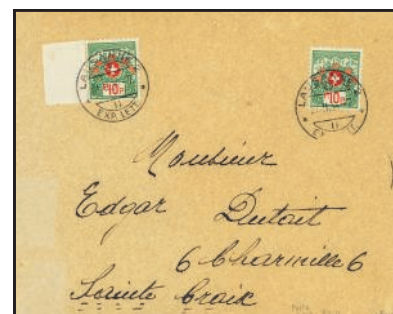 LAUSANNE
10
EXP. LETT.
LAUSANNE
10
EXP. LETT.
Monsieur
Edgar Dutoit
6 Charmille 6
Sainte Croix